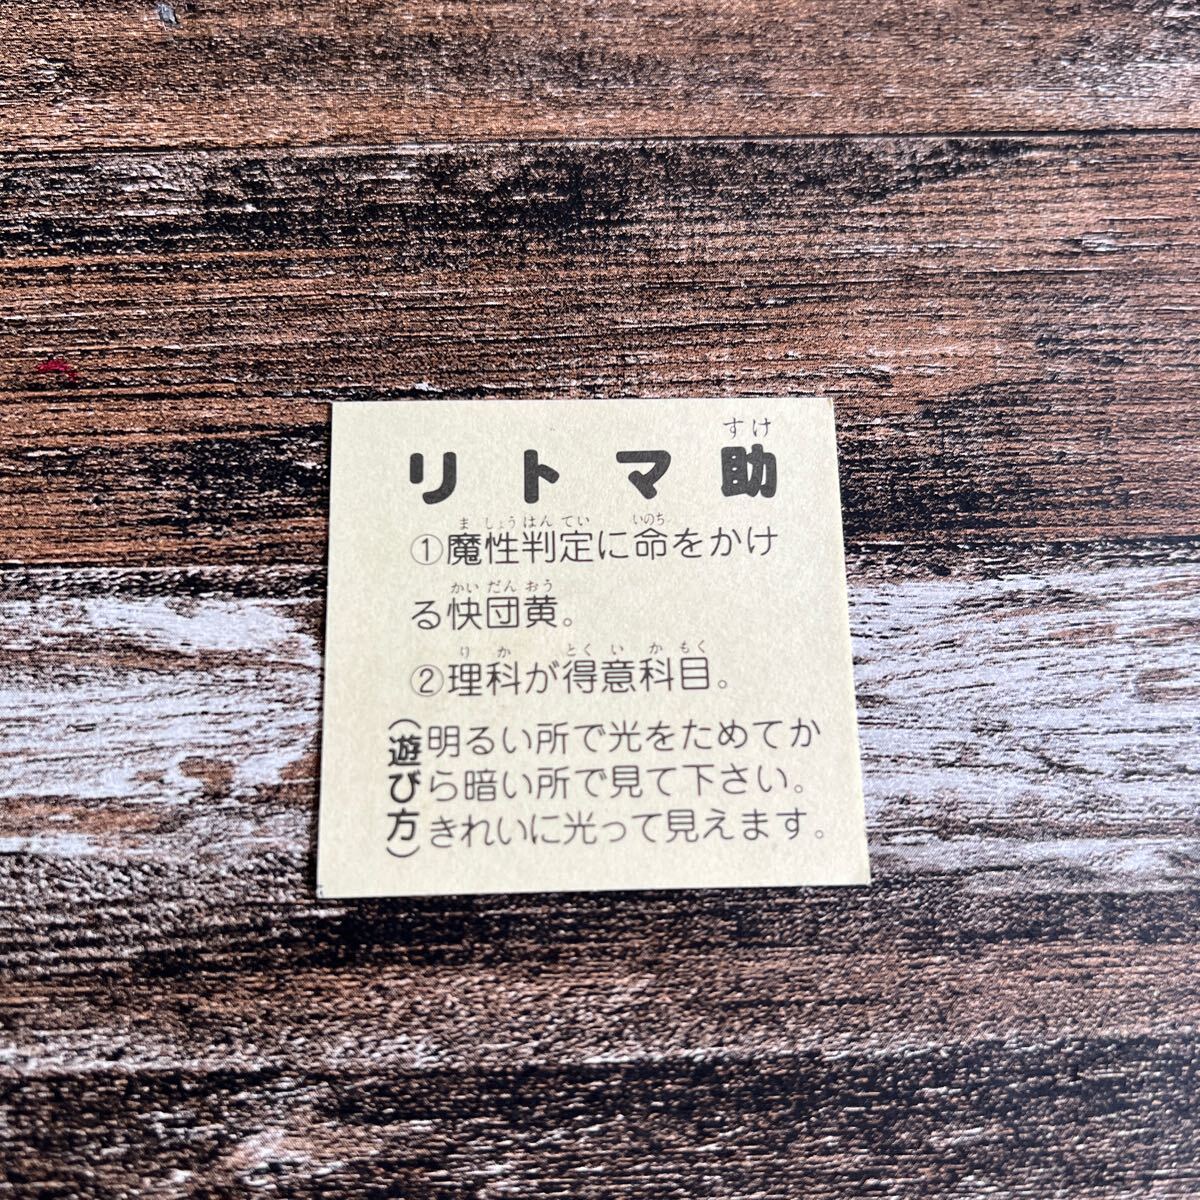 すけ
リトマ助
ましょうはんてい いのち
①魔性判定に命をかけ
かいだんおう
る快団黄。
りか とくいかもく
②理科が得意科目。
(遊び方)
明るい所で光をためてか
ら暗い所で見て下さい。
きれいに光って見えます。